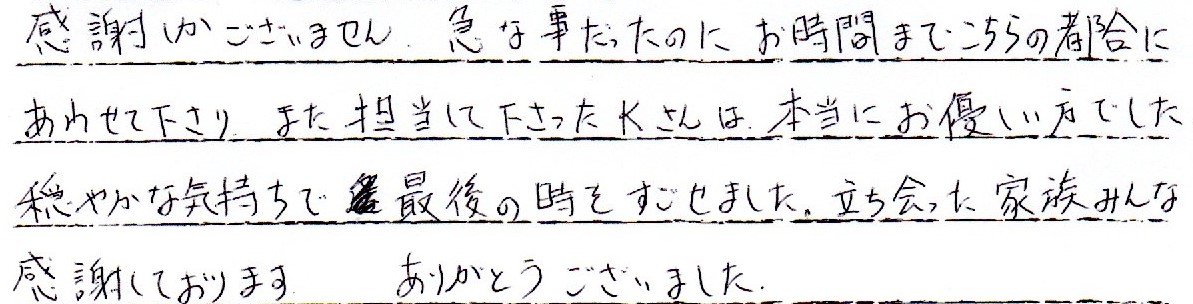 感謝しかございません. 急な事だったのに お時間までこちらの都合に
あわせて下さり. また 担当して下さったKさんは. 本当にお優しい方でした
穏やかな気持ちで 最後の時をすごせました. 立ち会った 家族みんな
感謝しております ありがとうございました.